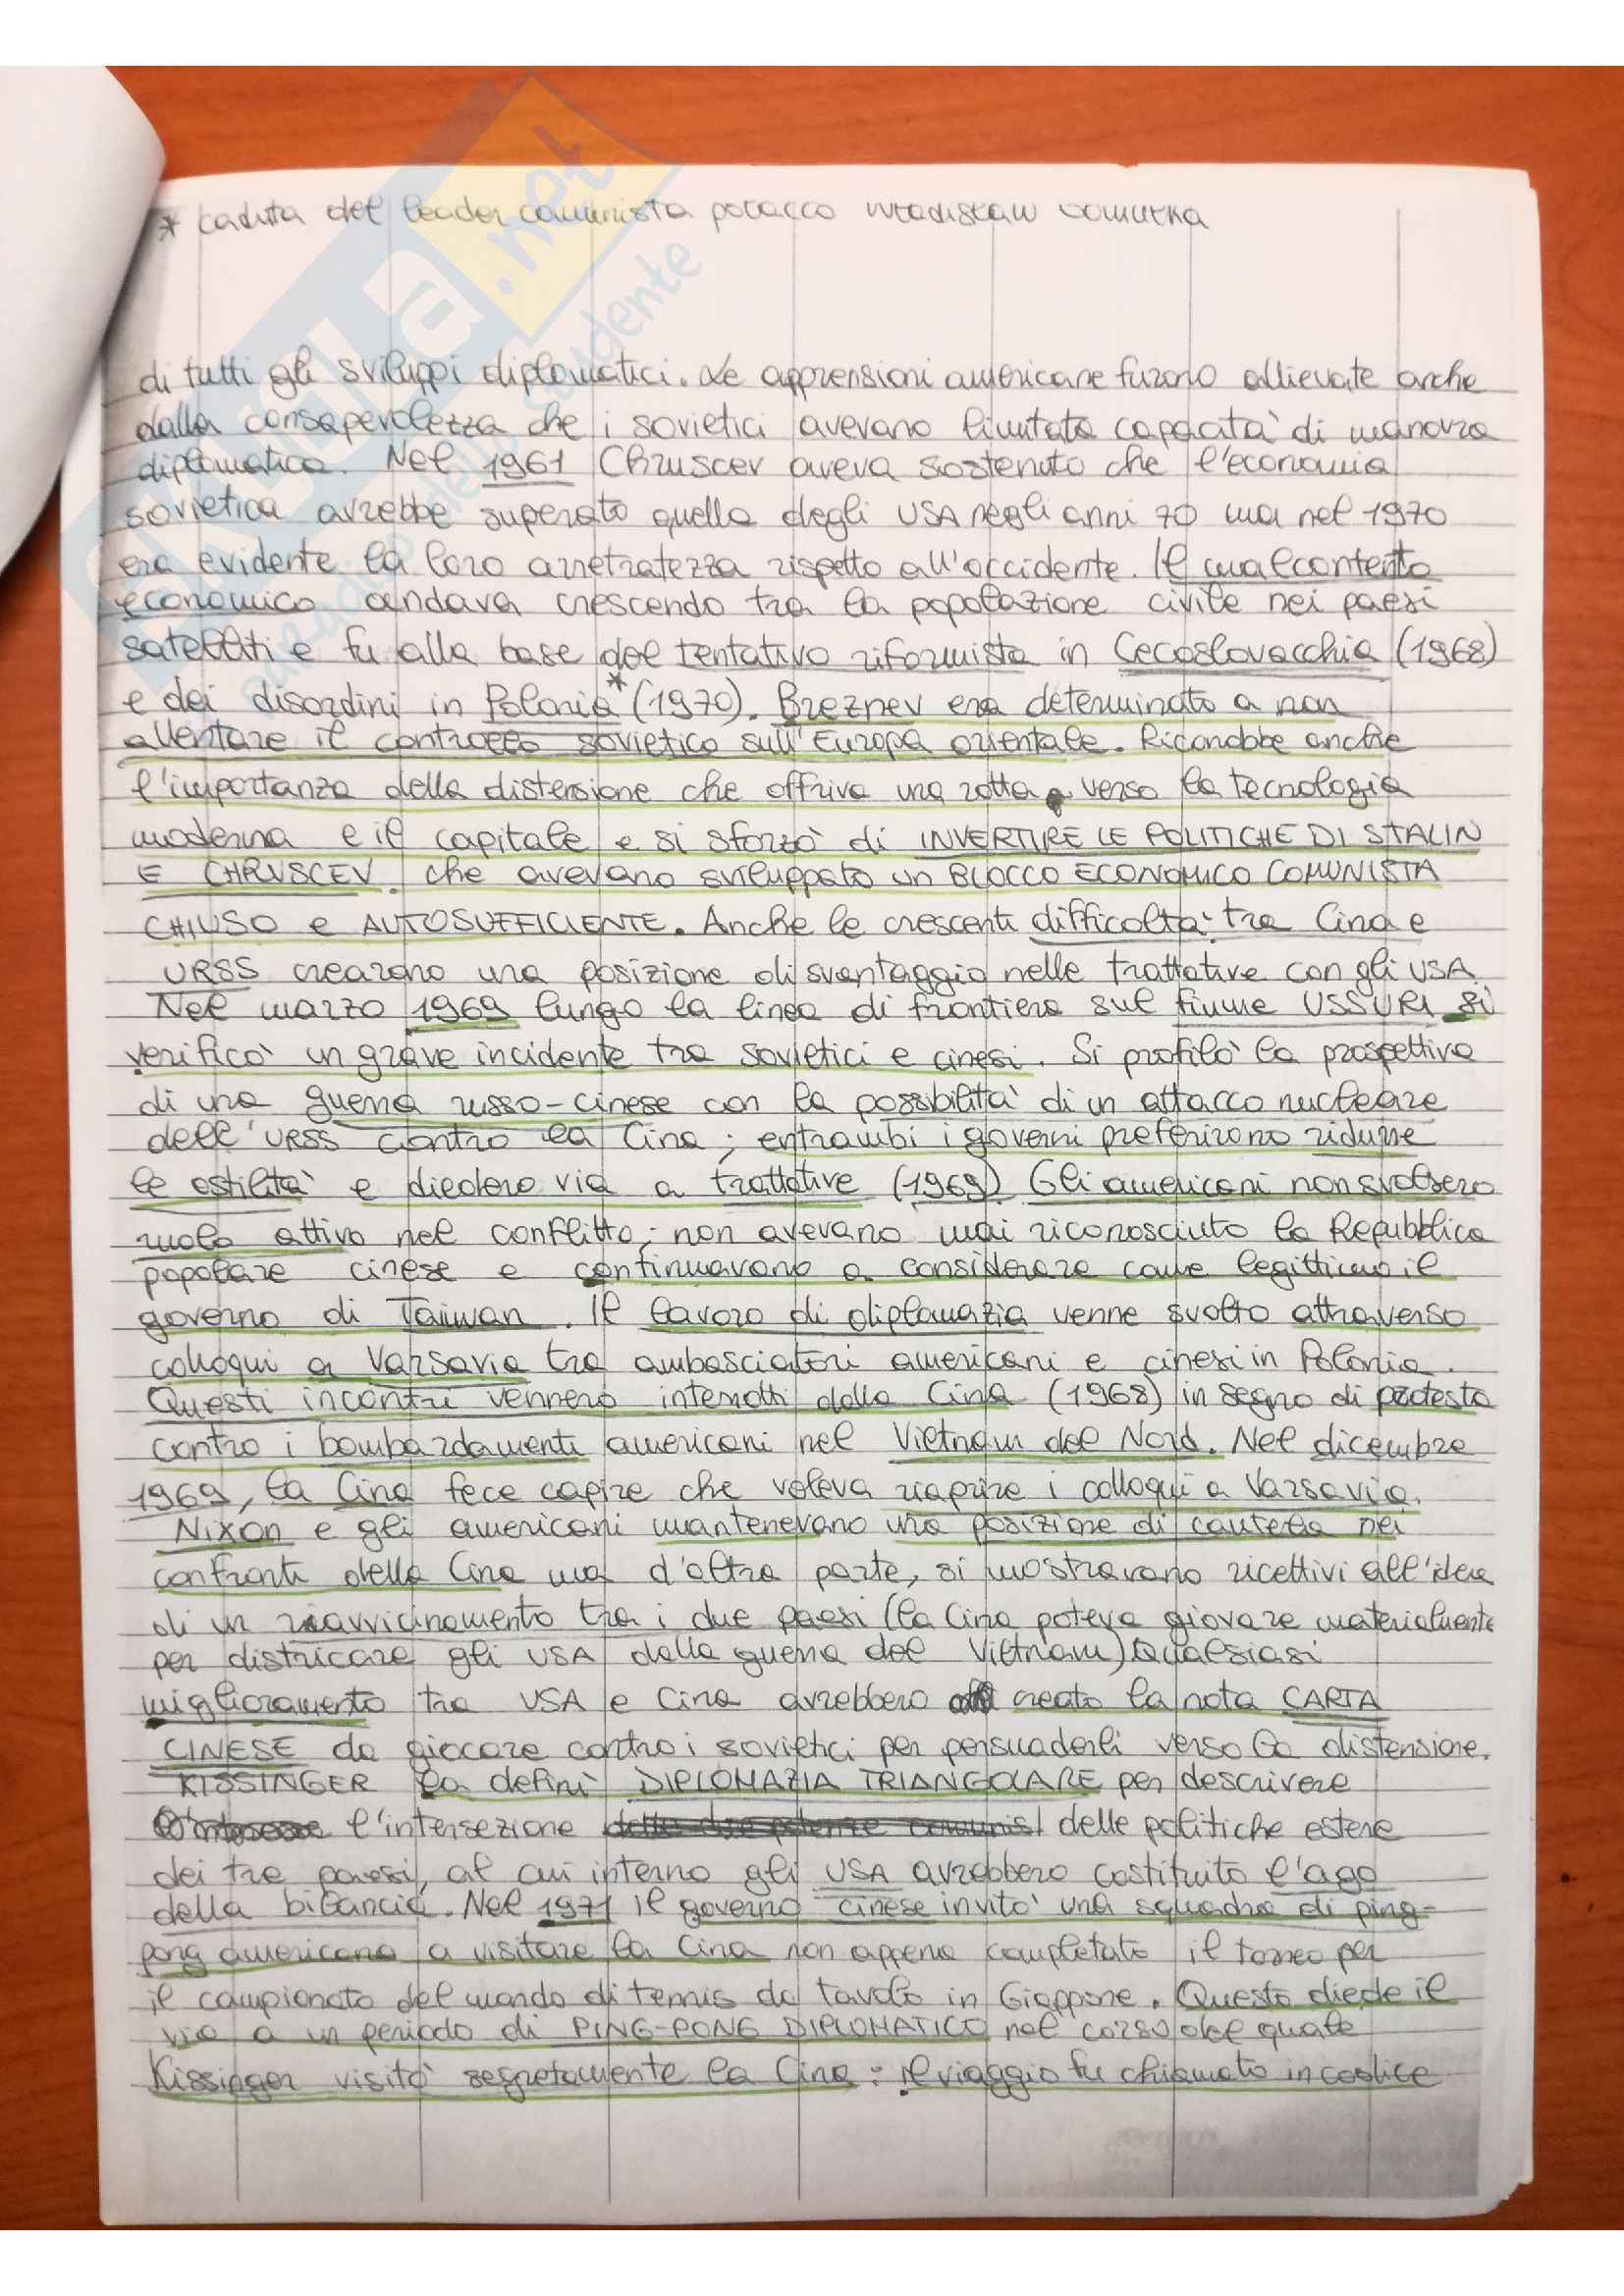 * caduta del leader comunista polacco Wladislaw Gomulka
di tutti gli sviluppi diplomatici. Le apprensioni americane furono allievate anche
dalla consapevolezza che i sovietici avevano limitata capacità di manovra
diplomatica. Nel 1961 Chruscev aveva sostenuto che l'economia
sovietica avrebbe superato quella degli USA negli anni 70 ma nel 1970
era evidente la loro arretratezza rispetto all'occidente. Il malcontento
economico andava crescendo tra la popolazione civile nei paesi
satelliti e fu alla base del tentativo riformista in Cecoslovacchia (1968)
e dei disordini in Polonia* (1970). Breznev era determinato a non
allentare il controllo sovietico sull'Europa orientale. Riconobbe anche
l'importanza della distensione che offriva una rotta verso la tecnologia
moderna e il capitale e si sforzò di INVERTIRE LE POLITICHE DI STALIN
E CHRUSCEV che avevano sviluppato un BLOCCO ECONOMICO COMUNISTA
CHIUSO e AUTOSUFFICIENTE. Anche le crescenti difficoltà tra Cina e
URSS crearono una posizione di svantaggio nelle trattative con gli USA.
Nel marzo 1969 lungo la linea di frontiera sul fiume USSURI si
verificò un grave incidente tra sovietici e cinesi. Si profilò la prospettiva
di una guerra russo-cinese con la possibilità di un attacco nucleare
dell'URSS contro la Cina; entrambi i governi preferirono ridurre
le ostilità e diedero via a trattative (1969) Gli americani non svolsero
ruolo attivo nel conflitto; non avevano mai riconosciuto la Repubblica
popolare cinese e continuavano a considerare come legittimo il
governo di Taiwan. Il lavoro di diplomazia venne svolto attraverso
colloqui a Varsavia tra ambasciatori americani e cinesi in Polonia.
Questi incontri vennero interrotti dalla Cina (1968) in segno di protesta
contro i bombardamenti americani nel Vietnam del Nord. Nel dicembre
1969, la Cina fece capire che voleva riaprire i colloqui a Varsavia.
Nixon e gli americani mantenevano una posizione di cautela nei
confronti della Cina ma d'altra parte, si mostravano ricettivi all'idea
di un riavvicinamento tra i due paesi (la Cina poteva giovare materialmente
per districare gli USA dalla guerra del Vietnam) Qualsiasi
miglioramento tra USA e Cina avrebbero creato la nota CARTA
CINESE da giocare contro i sovietici per persuaderli verso la distensione.
KISSINGER la definì DIPLOMAZIA TRIANGOLARE per descrivere
l'intersezione delle politiche estere
dei tre paesi, al cui interno gli USA avrebbero costituito l'ago
della bilancia. Nel 1971 il governo cinese invitò una squadra di ping-
pong americana a visitare la Cina non appena completato il torneo per
il campionato del mondo di tennis da tavolo in Giappone. Questo diede il
via a un periodo di PING-PONG DIPLOMATICO nel corso del quale
Kissinger visitò segretamente la Cina: il viaggio fu chiamato in codice